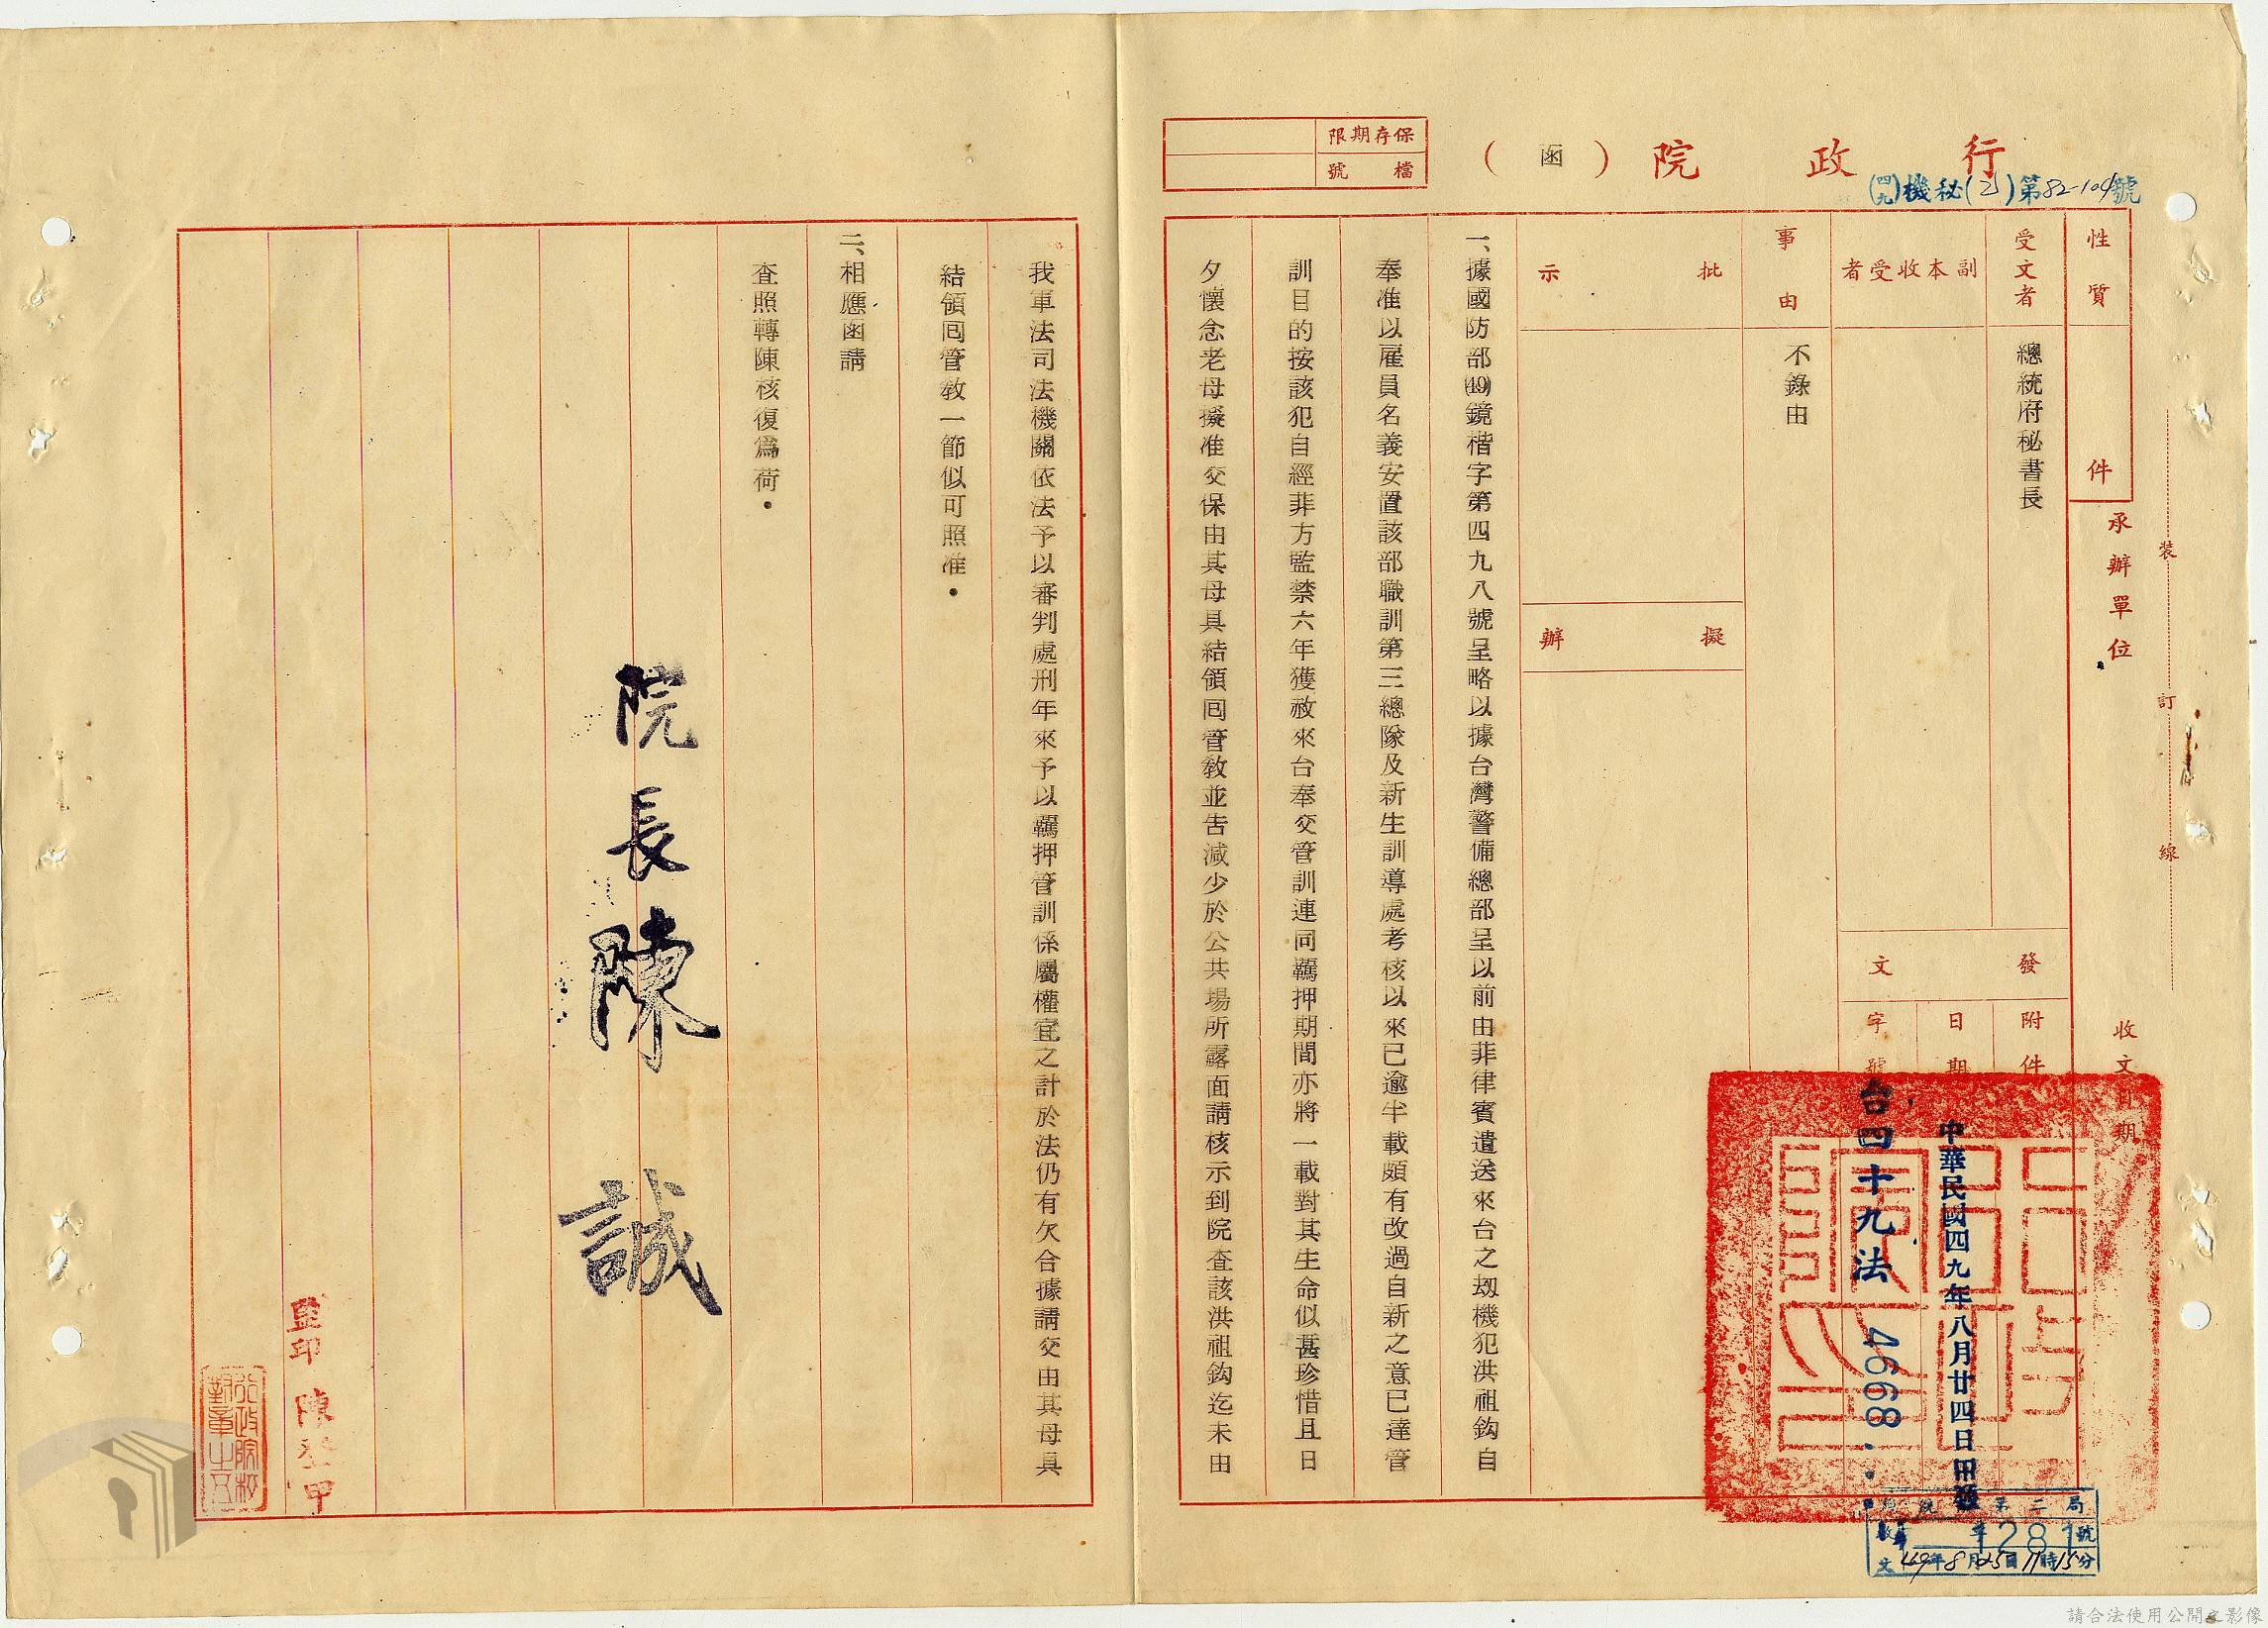 行政院（函）
保存期限
檔號
(四九)機秘(乙)第82-104號
性質
件
承辦單位
受文者
總統府秘書長
副本收受者
事由
不錄由
批示
擬辦
發文
附件
日期
中華民國四九年八月廿四日
字號
台四十九法 4668
收文日期
裝訂線
一、據國防部(49)鏡楷字第四九八號呈略以據台灣警備總部呈以前由菲律賓遣送來台之刼機犯洪祖鈎自
奉准以雇員名義安置該部職訓第三總隊及新生訓導處考核以來已逾半載頗有改過自新之意已達管
訓目的按該犯自經菲方監禁六年獲赦來台奉交管訓連同羈押期間亦將一載對其生命似甚珍惜且日
夕懷念老母擬准交保由其母具結領囘管教並吿減少於公共場所露面請核示到院查該洪祖鈎迄未由
我軍法司法機關依法予以審判處刑年來予以羈押管訓係屬權宜之計於法仍有欠合據請交由其母具
結領囘管教一節似可照准．
二、相應函請
查照轉陳核復爲荷．
院長陳誠
監印 陳登甲
行政院校對章
第二局
1281號
收文
49年8月25日11時15分
請合法使用公開之影像